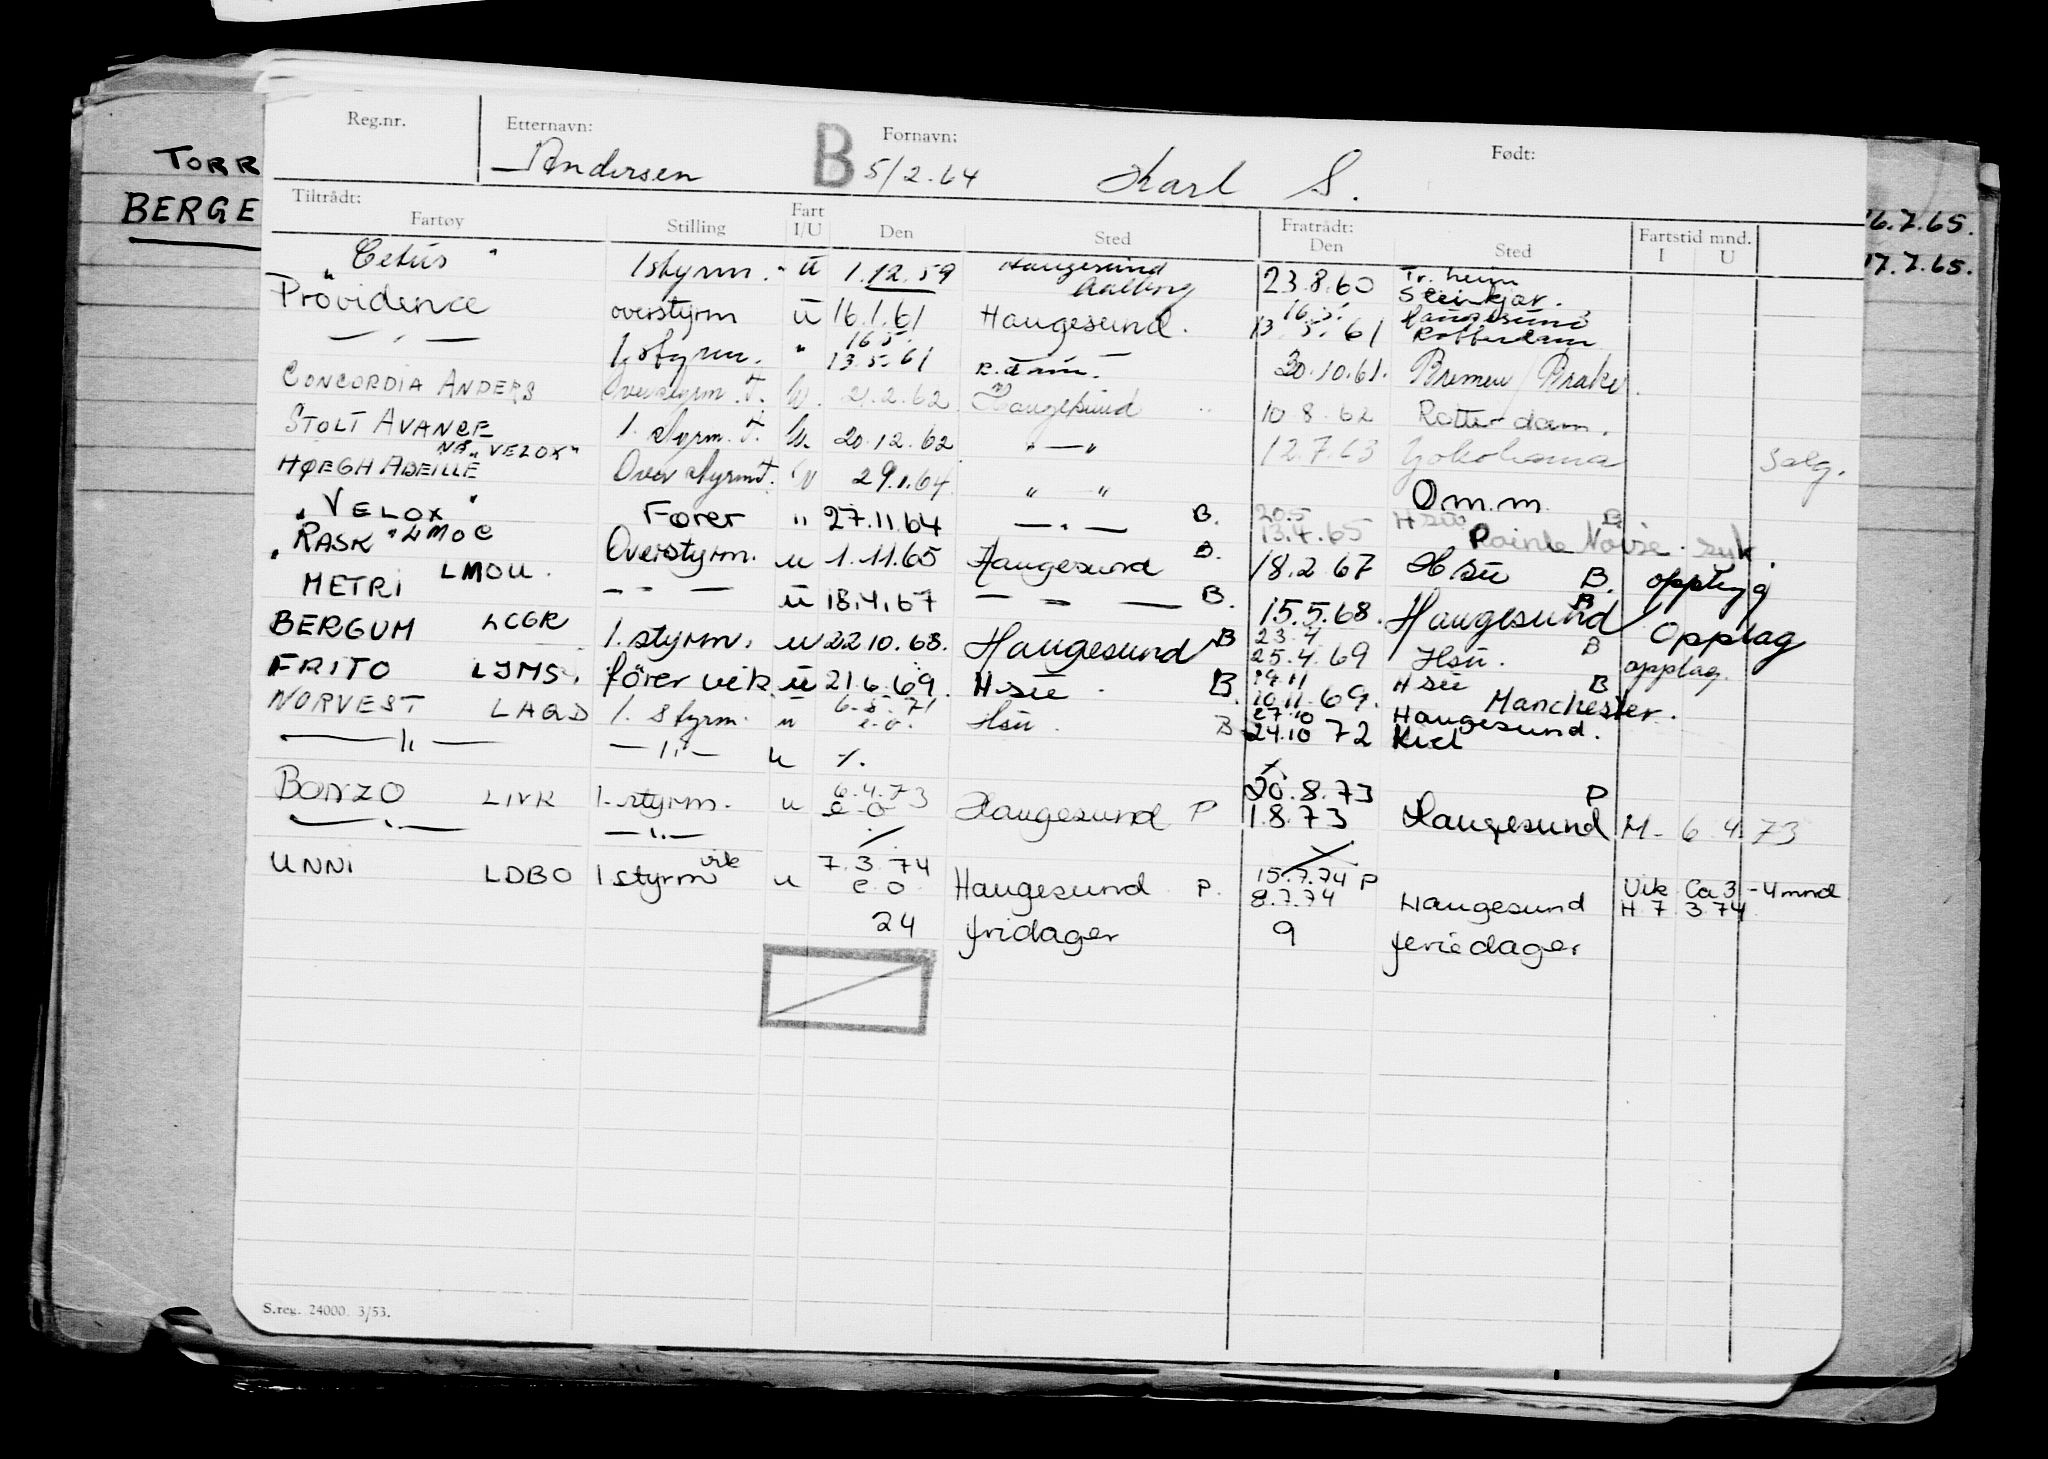 Reg.nr. Etternavn: Fornavn: Født:
Andersen B 5/2.64 Karl S.
Tiltrådt: Fratrådt:
Fartøy Stilling Fart I/U Den Sted Den Sted Fartstid mnd. I U
TORR
BERGE
16.7.65.
17.7.65.
"Cetus" 1styrm. ü 1.12.59 Haugesund Aalborg 23.8.60 Tr.heim Steinkjær.
Providence overstyrm ü 16.1.61 Haugesund. 16.5. 13.5.61 Haugesund Rotterdam
— " — 1.styrm. " 16.5. 13.5.61 30.10.61. Bremen/Brake.
CONCORDIA ANDERS Overstyrm. T. U. 21.2.62 Haugesund 10.8.62 Rotterdam.
STOLT AVANCE 1. styrm. T. U. 20.12.62 " — " 12.7.63 Yokohama Salg.
NÅ "VELOX"
HØEGH ABEILLE Overstyrm. U 29.1.64 " — " Omm.
"VELOX" Fører " 27.11.64 — " — B. 20.5 13.4.65 Hsü B Pointe Noire. syk
"RASK" LMOC Overstyrm. u 1.11.65 Haugesund B. 18.2.67 Hsü B. opplag
METRI LMOU. — " — ü 18.4.67 — " — B. 15.5.68. Haugesund B Opplag
BERGUM LCGR 1.styrm. u 22.10.68. Haugesund B 23.4 25.4.69 Hsü. B opplag.
FRITO LJMS. fører vik. ü 21.6.69. Hsü. B. 19.11 10.11.69. Hsü B Manchester.
NORVEST LAQD 1. styrm. u 6.5.71 e.o. Hsü. B 27.10 24.10 72 Haugesund. Kiel
— " — — " — u %.
BONZO LIVK 1.styrm. u 6.4.73 e.o Haugesund P 20.8.73 P 1.8.73 Haugesund M- 6.4.73
— " — — " —
UNNI LDBO 1styrm vik u 7.3.74 e.o. Haugesund P. 15.7.74 P 8.7.74 Haugesund Vik Ca 3-4mnd. H 7.3.74
24 fridager 9 feriedager
S.reg. 24000. 3/53.